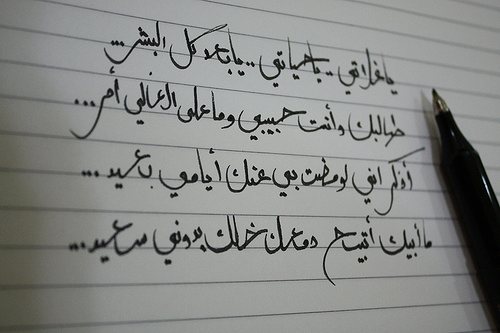 يا غلاتي .. يا حياتي .. يا بعد كل البشر ...
طالبك وأنت حبيبي وما على الغالي أمر ...
أذكر اني لو مضت بي عنك أيامي بعيد ...
ما أبيك أتبيح دمعك خلك بدوني سعيد ...